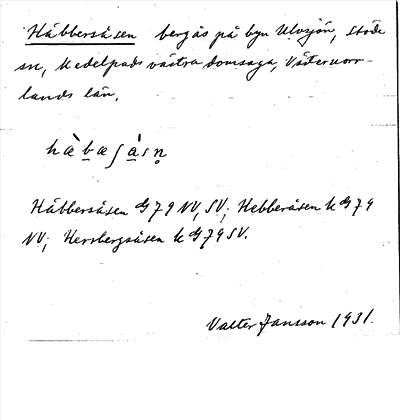 Häbbersåsen bergås på byn Ulvsjön, Stöde
sn, Medelpads västra domsaga, Västernorr-
lands län.
hæ̀bæʃàsn̥
Häbbersåsen G 79 NV, SV; Hebberåsen k G 79
NV; Herrbergsåsen k G 79 SV.
Valter Jansson 1931.